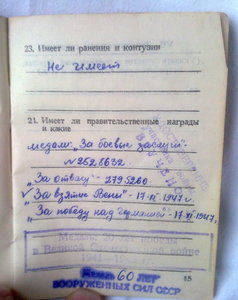 23. Имеет ли ранения и контузии
Не имеет
21. Имеет ли правительственные награды
и какие
медаль „За боевые заслуги"
№ 2525632.
„За отвагу" - 2795260
„За взятие Вены" - 17-XI-1947 г.
„За победу над Германией" - 17-XI-1947 г.
Медаль 20 лет победы
в Великой Отечественной войне
1941—1945
Медаль 60 ЛЕТ
ВООРУЖЕННЫХ СИЛ СССР
15